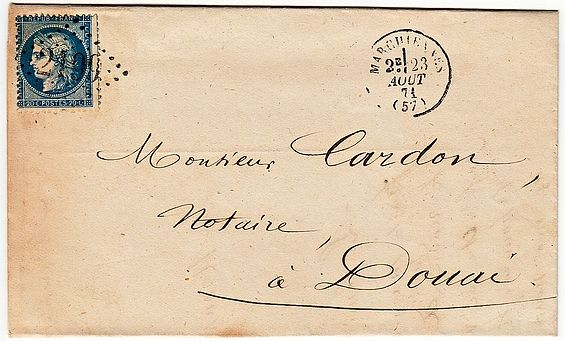 20 C POSTES 20 C
MARCHIENNES
2E 23
AOUT
71
(57)
Monsieur Cardon,
Notaire,
à Douai.